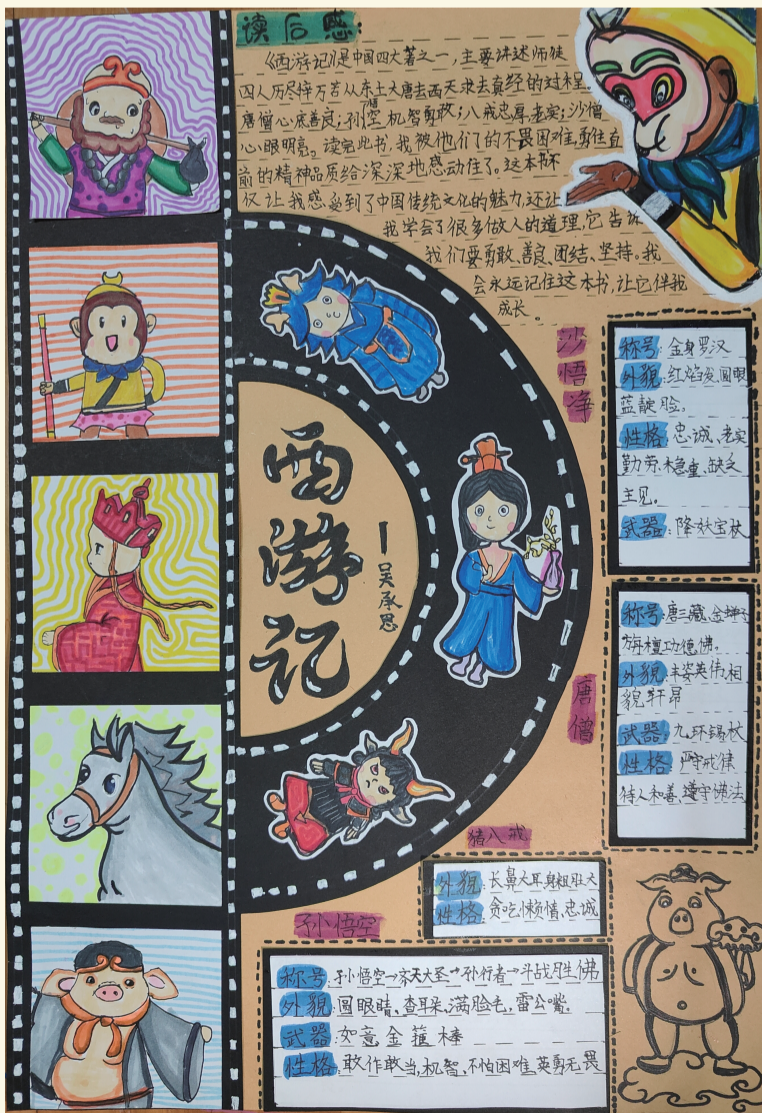 读后感:
《西游记》是中国四大著之一,主要讲述师徒
四人历尽千辛万苦从东土大唐去西天求去真经的过程。
唐僧心底善良;孙悟空机智勇敢;八戒忠厚老实;沙僧
心眼明亮。读完此书,我被他们的不畏困难,勇往直
前的精神品质给深深地感动住了。这本书不
仅让我感受到了中国传统文化的魅力,还让
我学会了很多做人的道理,它告诉
我们要勇敢、善良、团结、坚持。我
会永远记住这本书,让它伴我
成长。
西游记
—吴承恩
沙悟净
称号:金身罗汉
外貌:红焰发圆眼
蓝靛脸。
性格:忠诚、老实
勤劳、稳重、缺乏
主见。
武器:降妖宝杖
唐僧
称号:唐三藏、金蝉子
旃檀功德佛。
外貌:丰姿英伟,相
貌轩昂
武器:九环锡杖
性格:严守戒律
待人和善、遵守佛法
猪八戒
外貌:长鼻大耳身粗肚大
性格:贪吃懒惰、忠诚
孙悟空
称号:孙悟空→齐天大圣→孙行者→斗战胜佛
外貌:圆眼睛、查耳朵、满脸毛,雷公嘴。
武器:如意金箍棒
性格:敢作敢当,机智、不怕困难,英勇无畏